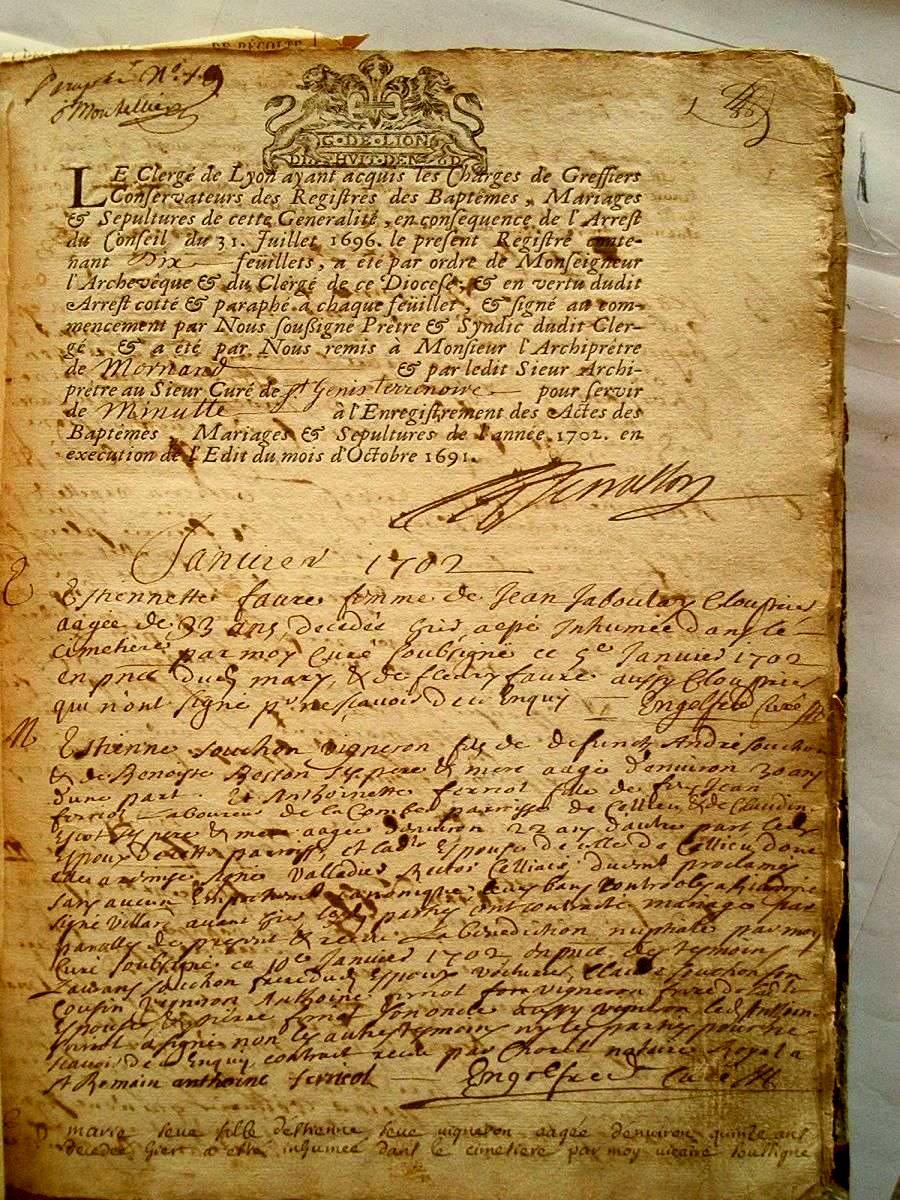 DE RÉCOLTE
G·DE·LION
DIX·HVIT·DEN·
LE Clergé de Lyon ayant acquis les Charges de Greffiers
Conservateurs des Registres des Baptêmes, Mariages
& Sepultures de cette Generalité, en consequence de l'Arrest
du Conseil du 31. Juillet 1696. le present Registre conte-
nant Dix feüillets, a été par ordre de Monseigneur
l'Archevêque & du Clergé de ce Diocese, & en vertu dudit
Arrest cotté & paraphé à chaque feüillet, & signé au com-
mencement par Nous soußigné Prêtre & Syndic dudit Cler-
gé, & a été par Nous remis à Monsieur l'Archiprêtre
de Mornand & par ledit Sieur Archi-
prêtre au Sieur Curé de St Genis terrenoire pour servir
de Minutte à l'Enregistrement des Actes des
Baptêmes, Mariages & Sepultures de l'année 1702. en
execution de l'Edit du mois d'Octobre 1691.
Janvier 1702
Estiennette faure femme de Jean Jaboulay Cloustrier
aagée de 33 ans decedée hier a esté Inhumée dans le
cimetiere par moy Curé soubsigné ce 5e Janvier 1702
en pnce dud mary, & de fleury faure aussy Cloustrier
qui n'ont signé pr ne sçavoir de ce Enquy Engelfred Curé
M
Estienne souchon vigneron fils de defunct André souchon
& de Benoiste Besson ses pere & mere aagé d'environ 30 ans
d'une part. Et Anthoinette ferriol fille de feu Jean
ferriol laboureur de la Combe parroisse de Cellieu & de Claudine
ses pere & mere aagée d'environ 22 ans d'autre part led
Espoux de cette parroisse, et lad Espouse de celle de Cellieu
Valladier Rector duemt proclamés
sans aucun Empechemt canonique leurs bans controolés a
signé Villars avant hier lesd parties ont contracté mariage par
parolles de present & receu la benediction nuptiale par moy
Curé soubsigné ce 10e Janvier 1702 en pnce des temoins
souchon frere dud Espoux voiturier, Claude souchon son
cousin vigneron Anthoine ferriol vigneron frere de lad
Espouse & pierre ferriol son oncle aussy vigneron led Anthoine
ferriol a signé non les autres temoins ny les parties pour ne
sçavoir de ce Enquy contrait receu par Chorel notaire Royal a
st Romain anthoine ferriol Engelfred Curé
marie seue fille d'estienne seue vigneron aagée d'environ quinze ans
decedée hier a esté inhumée dans le cimetiere par moy vicaire soussigné